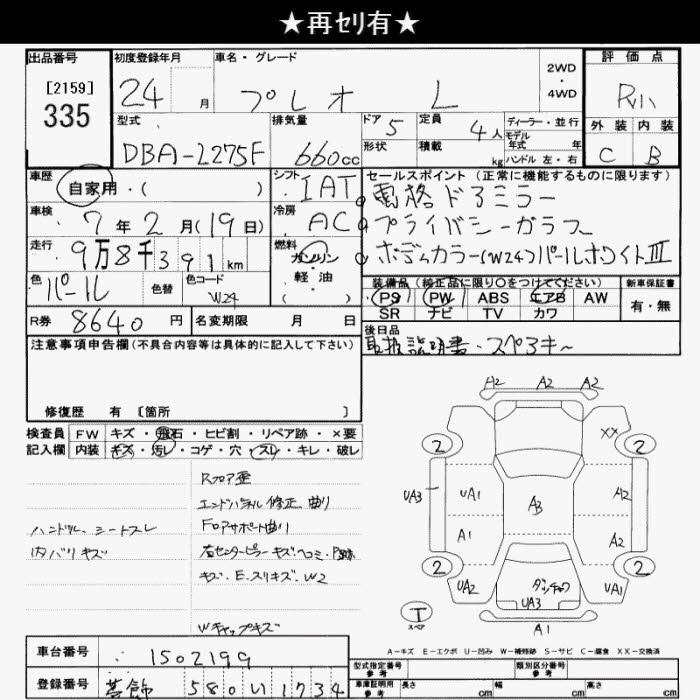 ★再セリ有★
出品番号
[2159]
335
初度登録年月
24 月
車名・グレード
プレオ L
2WD
・
4WD
評価点
外装 内装
C B
型式
DBA-L275F
排気量
660cc
ドア 5
形状
定員 4人
積載 kg
ディーラー・並行
モデル年式 年
ハンドル 左・右
車歴
自家用・( )
車検
7年2月(19日)
走行
9万8千391km
色
パール
色替
色コード
W24
シフト
IAT
冷房
AC
燃料
ガソリン
軽油
( )
セールスポイント (正常に機能するものに限ります)
電格ドアミラー
プライバシーガラス
ボディカラー(W24)パールホワイトIII
装備品 (純正品に限り○をつけてください)
PS PW ABS エアB AW
SR ナビ TV カワ
新車保証書
有・無
R券 8640円
名変期限 月 日
後日品
取扱説明書・スペアキー
注意事項申告欄(不具合内容等は具体的に記入して下さい)
修復歴 有 [箇所 ]
検査員 FW キズ・飛石・ヒビ割・リペア跡・×要
記入欄 内装 キズ・汚レ・コゲ・穴・スレ・キレ・破レ
ハンドル、シートスレ
内バリキズ
Rフロア歪
エンドパネル修正、曲り
Fロアサポート曲り
右センターピラーキズ・ヘコミ・P跡
キズ・E・スリキズ・W2
Wキャップキズ
A2 A2 A2
XX
2 2
UA3 UA1 A3 A2
A1 A2
2 2
UA2 UA3 UA1
T
スペア
A1
A-キズ E-エクボ U-凹み W-補修跡 S-サビ C-腐食 XX-交換済
車台番号 1502199
登録番号 580 い 1734
型式指定番号
参考
類別区分番号
参考
車庫証明用
参考
長さ cm 幅 cm 高さ cm